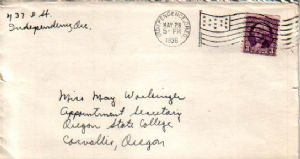 437 E St.
Independence, Ore.
INDEPENDENCE, OREG.
MAY 28
5-PM
1936
Miss May Workinger
Appointment Secretary
Oregon State College
Corvallis, Oregon